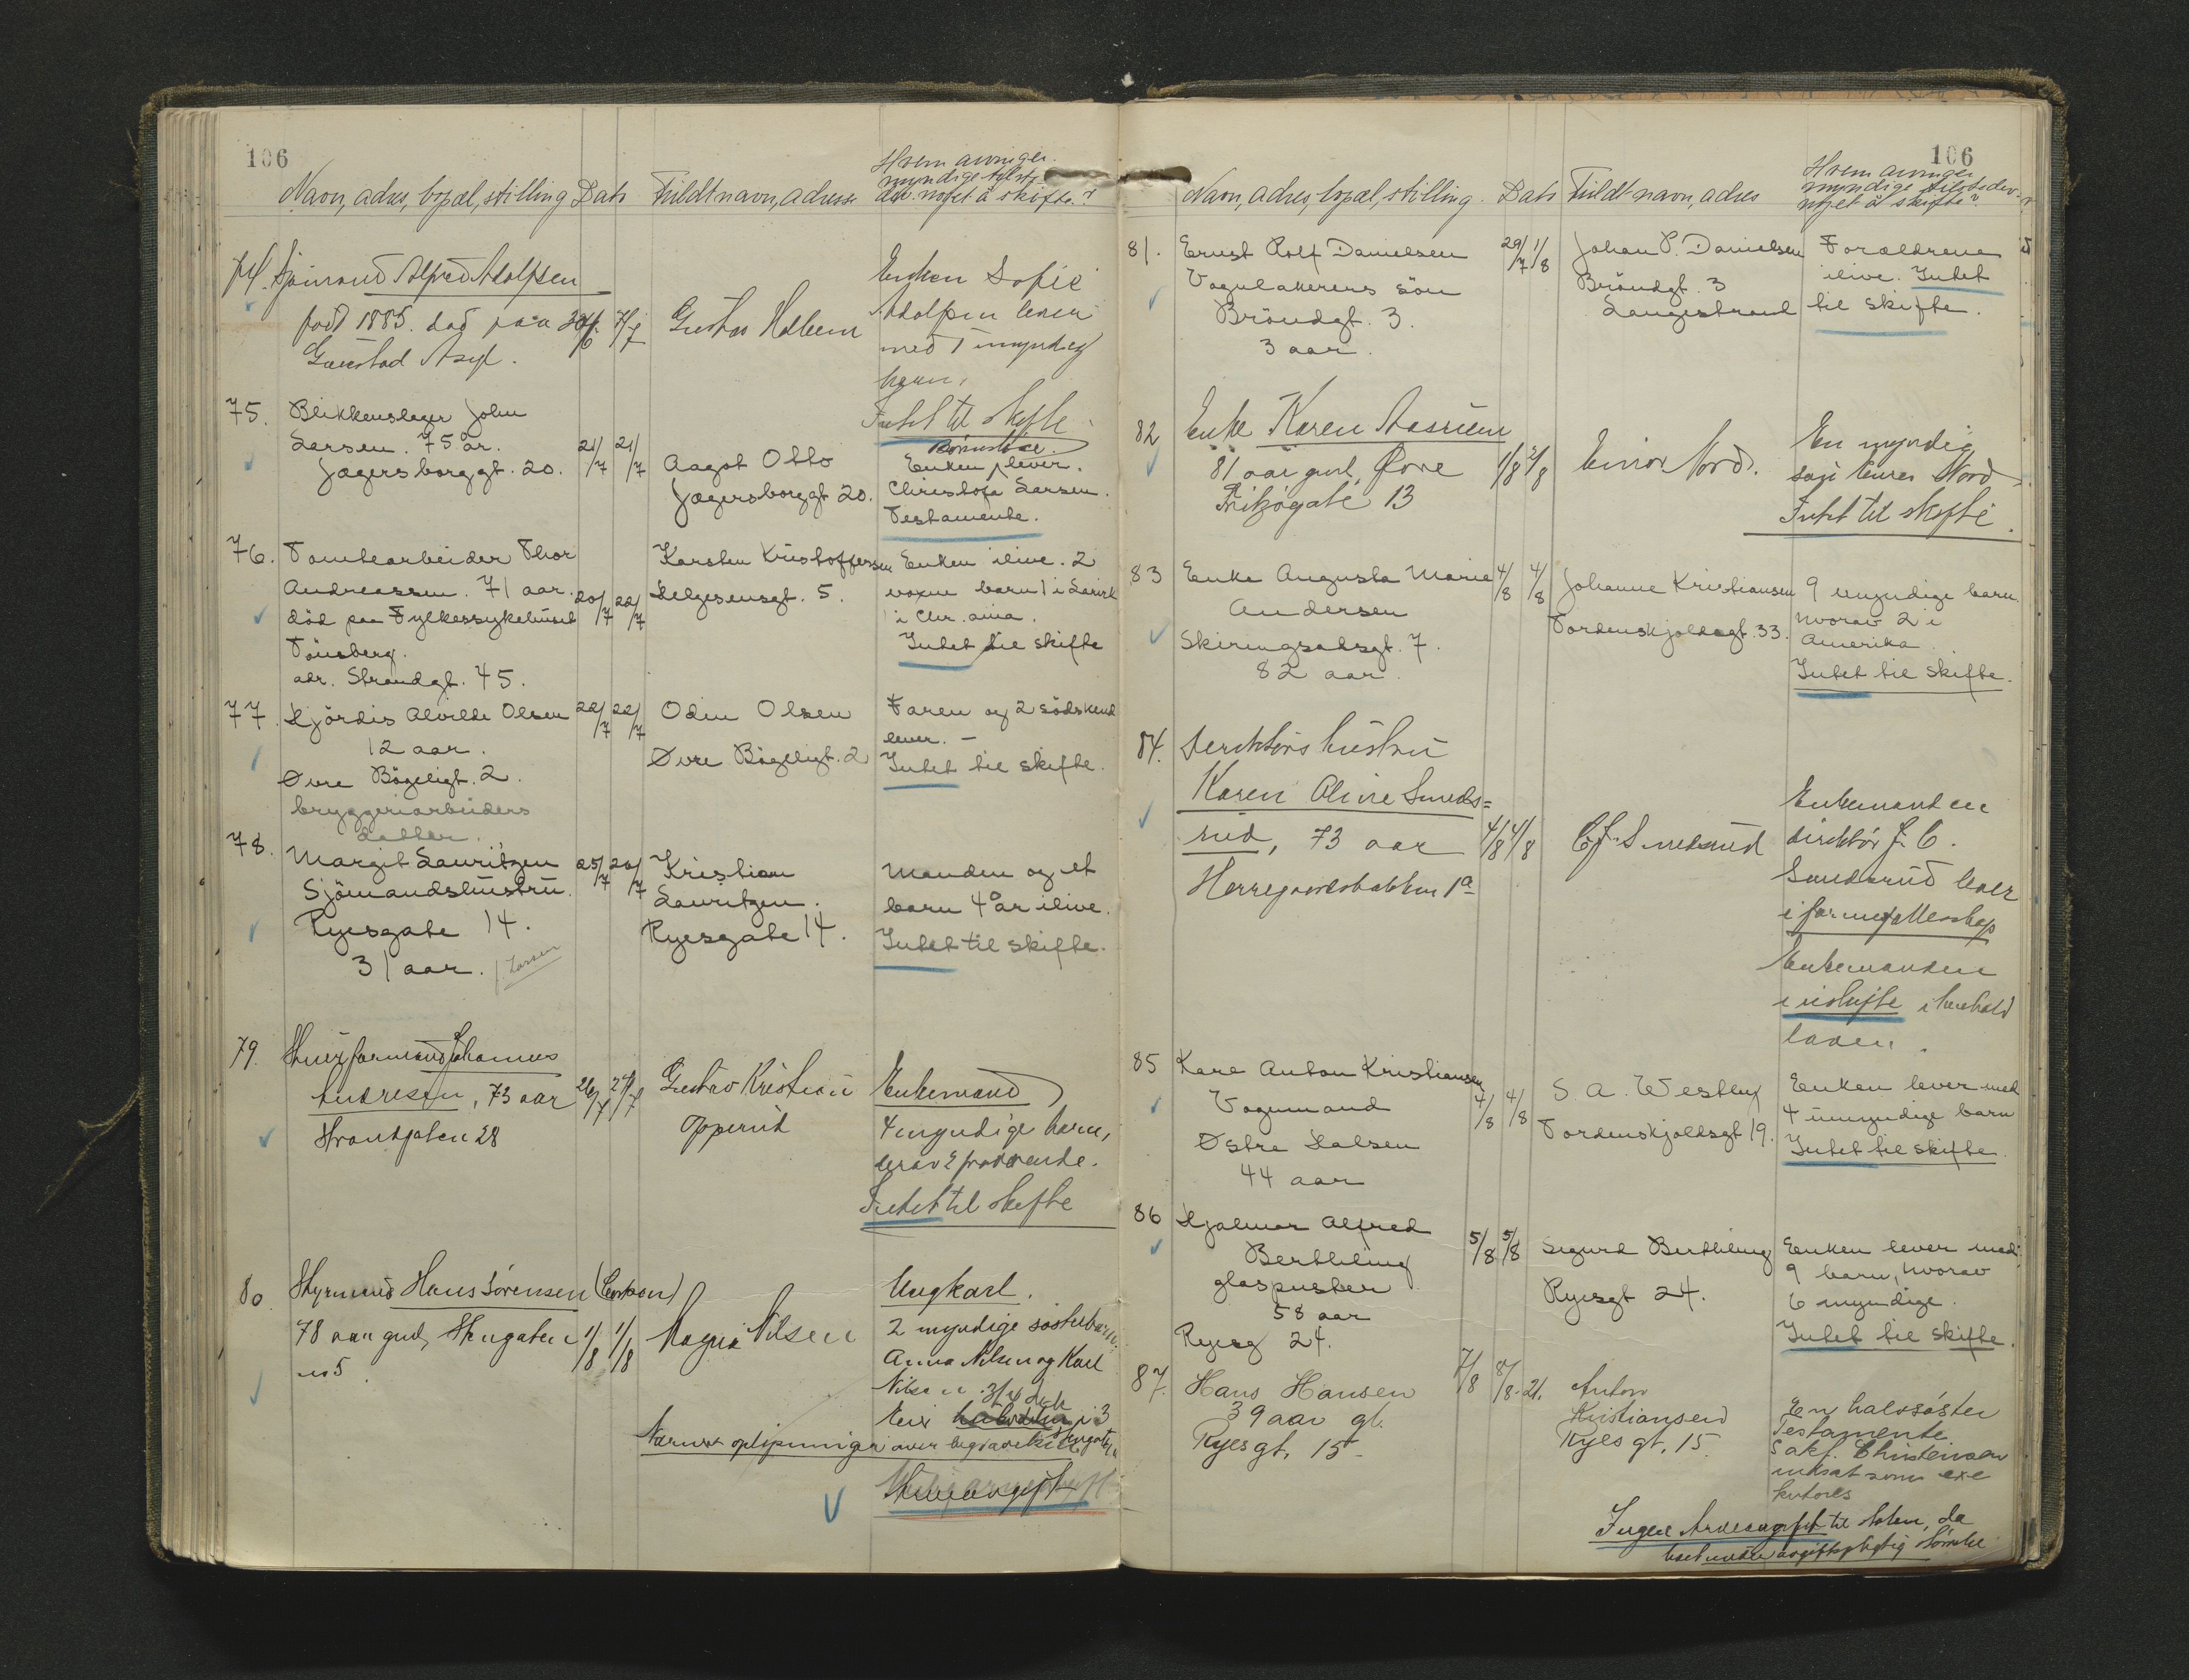 106
Navn, adres, bopæl, stilling Dato Fuldt navn, adresse
Hvem arvinger
myndige
noget å skifte?
74. Sjømand Alfred Adolfsen
født 1885. død paa 30/6 7/7
Gaustad Asyl.
Gustav Holm
Enken Sofie
Adolfsen lever
med 1 umyndig
barn.
Intet til skifte
75. Blikkenslager John
Larsen. 75 år. 21/7 21/7
Jægersborggt. 20.
Aagot Otto
Jægersborggt 20.
Enken lever.
Christofa Larsen.
Testamente.
76. Tomtearbeider Thor
Andreassen. 71 aar. 20/7 22/7
död paa Fylkessykehuset
Tönsberg.
adr. Strandgt. 45.
Karsten Kristoffersen
Helgesensgt. 5.
Enken ilive. 2
voxne barn 1 i Larvik
1 i Chr.ania.
Intet til skifte
77. Hjördis Alvilde Olsen 22/7 22/7
12 aar.
Øvre Bögeligt. 2.
bryggeriarbeiders
datter.
Odin Olsen
Øvre Bögeligt. 2
Faren og 2 södskend
lever. –
Intet til skifte.
78. Margit Lauritzen 25/7 26/7
Sjömandshustru.
Ryesgate 14.
31 aar. / Larsen
Kristian
Lauritzen.
Ryesgate 14.
Manden og et
barn 4 år ilive.
Intet til skifte.
79. Johannes
Andresen, 73 aar 26/7 27/7
Strandgaten 28
Gustav Kristian
Opperud
Enkemand
4 myndige barn,
derav 2 fraværende.
Intet til skifte
80. Styrmand Hans Sörensen
78 aar gml, Stengaten 1/8 1/8
no 5.
Magna Nilsen
Ungkarl.
2 myndige söstebarn,
Anna Nilsen og Karl
Nilsen.
Nærmere oplysninger over
106
Navn, adres, bopæl, stilling. Dato Fuldt navn, adres
Hvem arvinger
myndige tilstede
noget å skifte?
81. Ernst Rolf Danielsen 29/7 1/8
Vognlakerers sön
Bröndgt. 3.
3 aar.
Johan P. Danielsen
Bröndgt. 3
Langestrand
Foraldrene
ilive. Intet
til skifte.
82 Enke Karen Aasrum
81 aar gml, Övre 1/8 2/8
Fritzögate 13
Einar Nord.
En myndig
søn Einar Nord
Intet til skifte.
83 Enke Augusta Marie 4/8 4/8
Andersen
Skiringsalsgt. 7.
82 aar.
Johanne Kristiansen
Tordenskjoldsgt. 33.
9 myndige barn.
hvorav 2 i
Amerika.
Intet til skifte.
84. Direktörs hustru
Karen Oline Smeds=
rud, 73 aar 4/8 4/8
Herregaardsbakken 1a
C. J. Smedsrud
Enkemanden
direktör J. C.
Smedsrud lever
i formuefællesskap
Enkemanden
i uskifte i henhold
loven.
85 Kare Anton Kristiansen
Vognmand 4/8 4/8
Østre Halsen
44 aar
S. A. Westby
Tordenskjoldsgt 19.
Enken lever med
4 umyndige barn
Intet til skifte.
86 Hjalmar Alfred
Berthling 5/8 5/8
glaspuster
58 aar
Ryesg 24.
Sigurd Berthling
Ryesgt 24.
Enken lever med
9 barn, hvorav
6 myndige.
Intet til skifte.
87. Hans Hansen 7/8 8/8-21.
39 aar gl.
Ryesgt. 15
Anton
Kristiansen
Ryesgt. 15.
En halvsöster
Testamente
Sakf. Christensen
indsat som exe
kutores
Ingen Arveavgift til staten, da
boet under avgiftspligtig störrelse